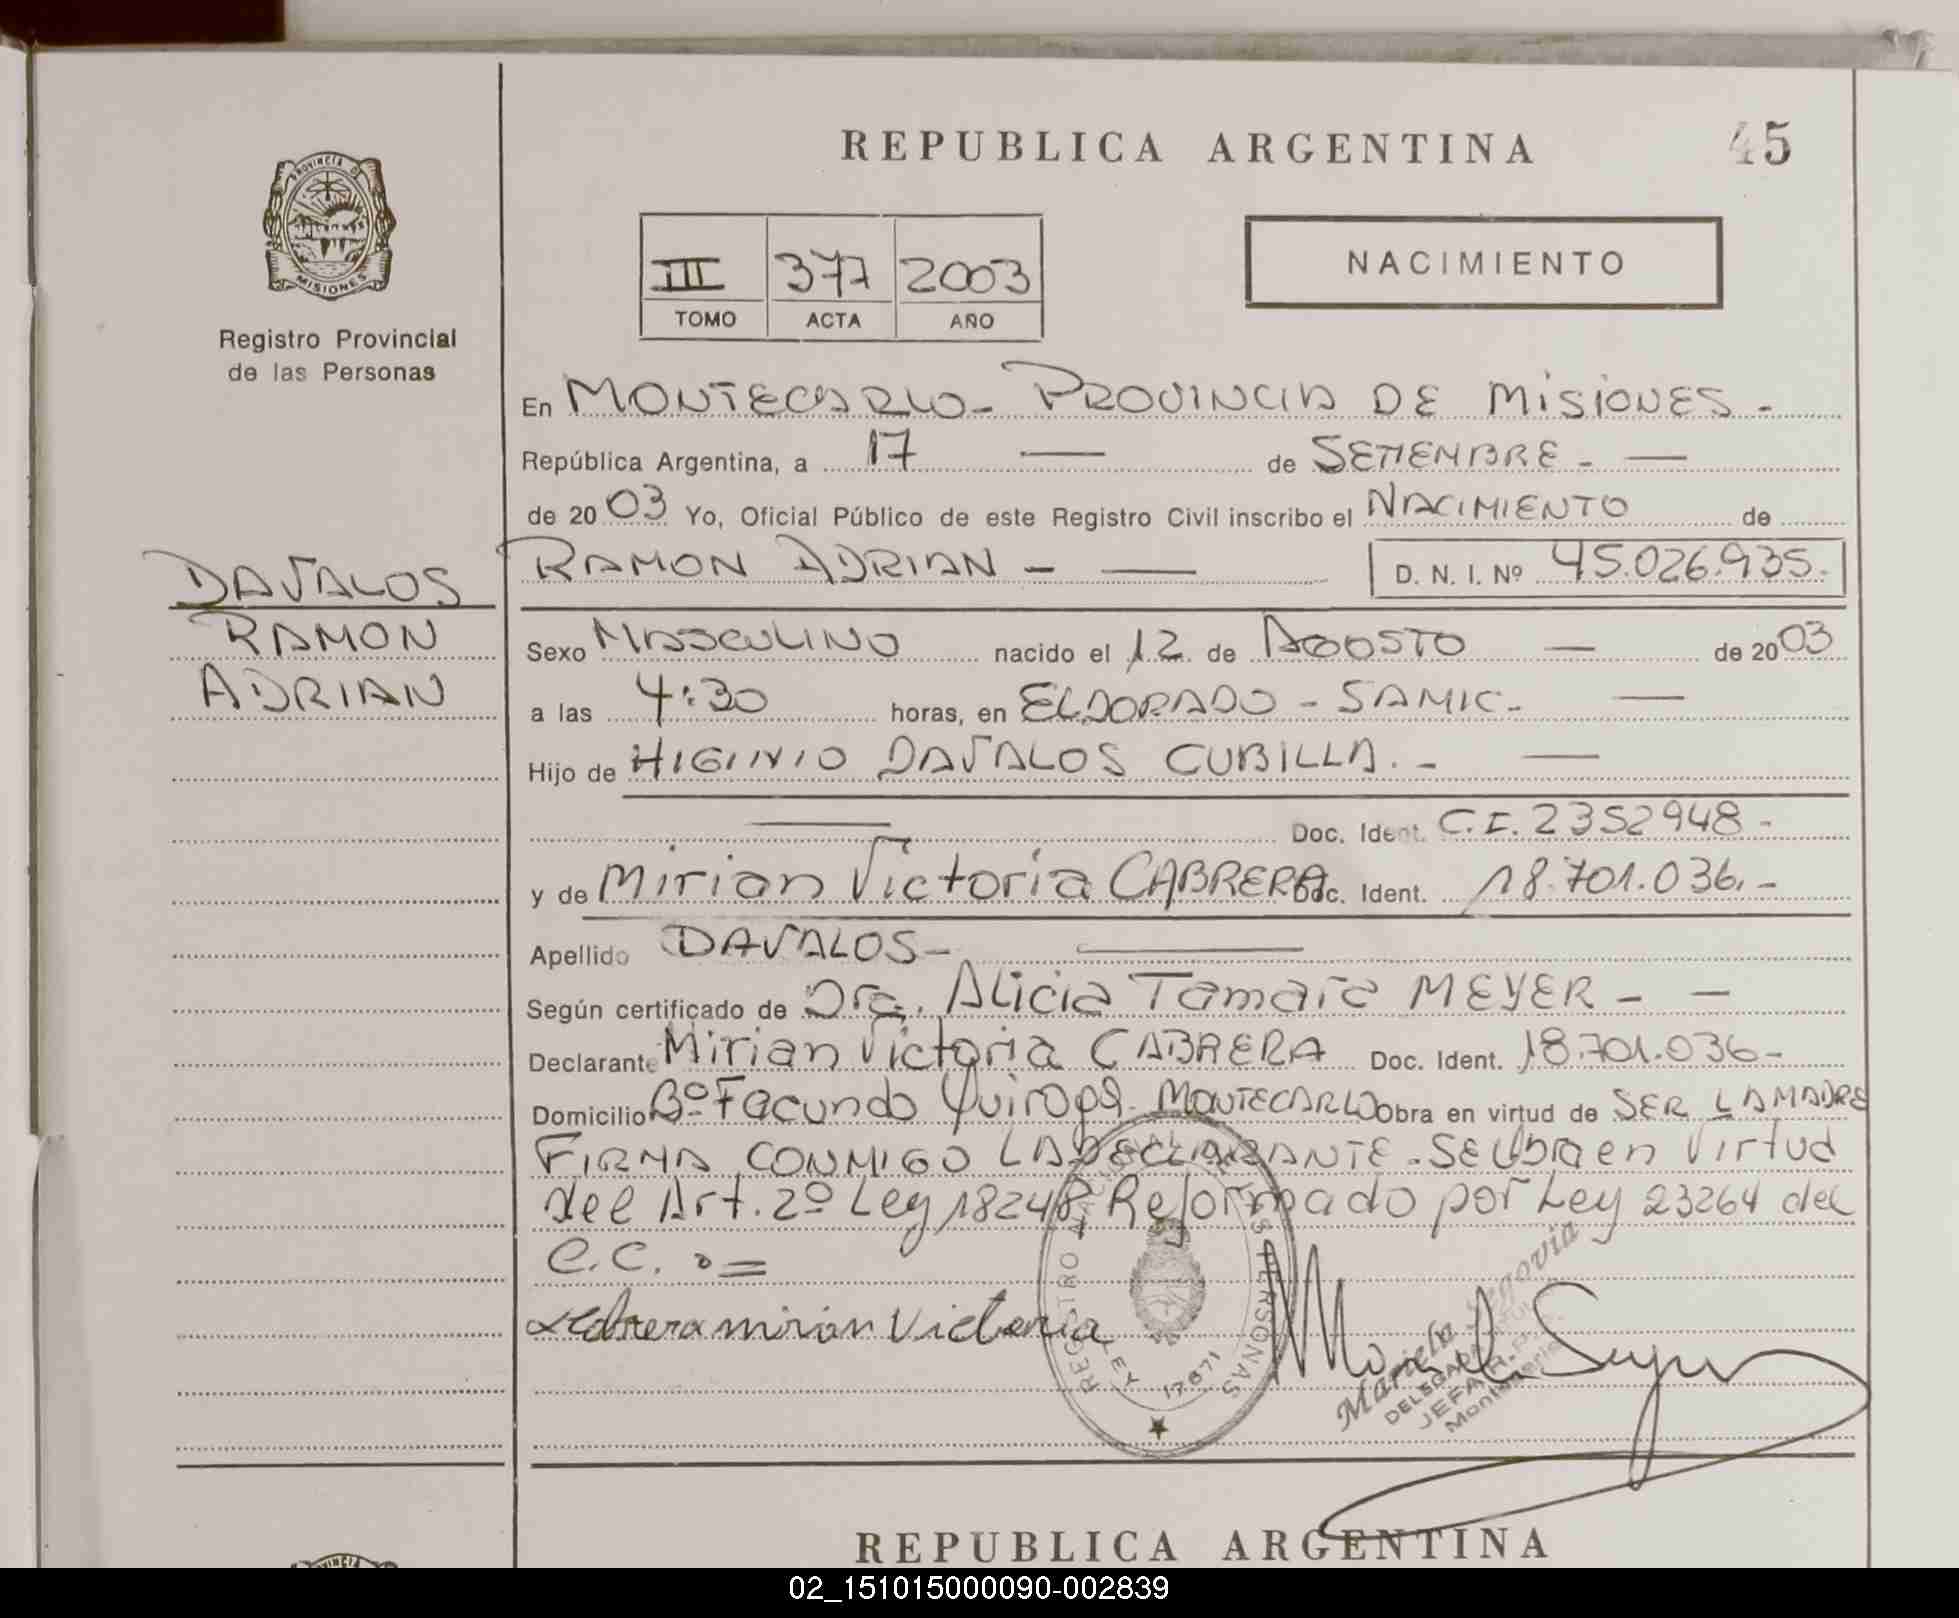 REPUBLICA ARGENTINA
45
PROVINCIA DE
MISIONES
Registro Provincial
de las Personas
III 377 2003
TOMO ACTA AÑO
NACIMIENTO
En MONTECARLO - PROVINCIA DE MISIONES -
República Argentina, a 17 — de SETIEMBRE - —
de 20 03 Yo, Oficial Público de este Registro Civil inscribo el NACIMIENTO de
RAMON ADRIAN - — D. N. I. Nº 45.026.935.-
DAVALOS
RAMON
ADRIAN
Sexo MASCULINO nacido el 12 de AGOSTO — de 20 03
a las 4:30 horas, en ELDORADO - SAMIC - —
Hijo de HIGINIO DAVALOS CUBILLA. - —
— Doc. Ident. C.I. 2352948 -
y de Mirian Victoria CABRERA Doc. Ident. 18.701.036. -
Apellido DAVALOS - —
Según certificado de Dra. Alicia Tamara MEYER - —
Declarante Mirian Victoria CABRERA Doc. Ident. 18.701.036 -
Domicilio Bº Facundo Quiroga - MONTECARLO Obra en virtud de SER LA MADRE
FIRMA CONMIGO LA DECLARANTE - SE Obra en Virtud
del Art. 2º Ley 18248, Reformado por Ley 23264 del
C.C. o =
Cabrera mirian Victoria
REGISTRO NACIONAL DE LAS PERSONAS
LEY 17671
Mariela Segovia
DELEGADA
JEFA R.P.
REPUBLICA ARGENTINA
PROVINCIA
02_151015000090-002839